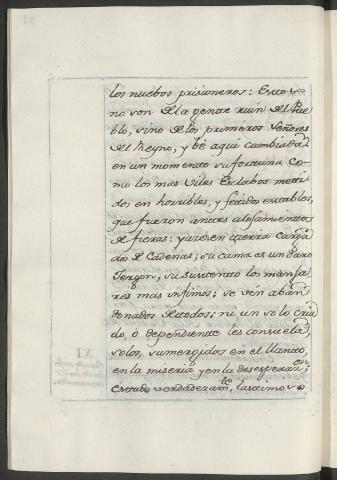 los nuebos prisioneros: Estos
no son de la gente ruin del Pue
blo, sino de los primeros Señores
del Reyno, y bé aqui cambiada
en un momento su fortuna co-
mo los mas viles Esclabos meti
dos en horribles, y fetidos establos,
que fueron antes alojamientos
de fieras: yazen en tierra carga
dos de Cadenas; su cama es un duro
Jergon, su sustento los manja
res mas infimos; se vén aban
donados de todos; ni un solo Cria
do, ó dependiente les consuela
solos, sumergidos en el llanto,
en la miseria, y en la desesperan
estado verdaderamte lastimoso
XI